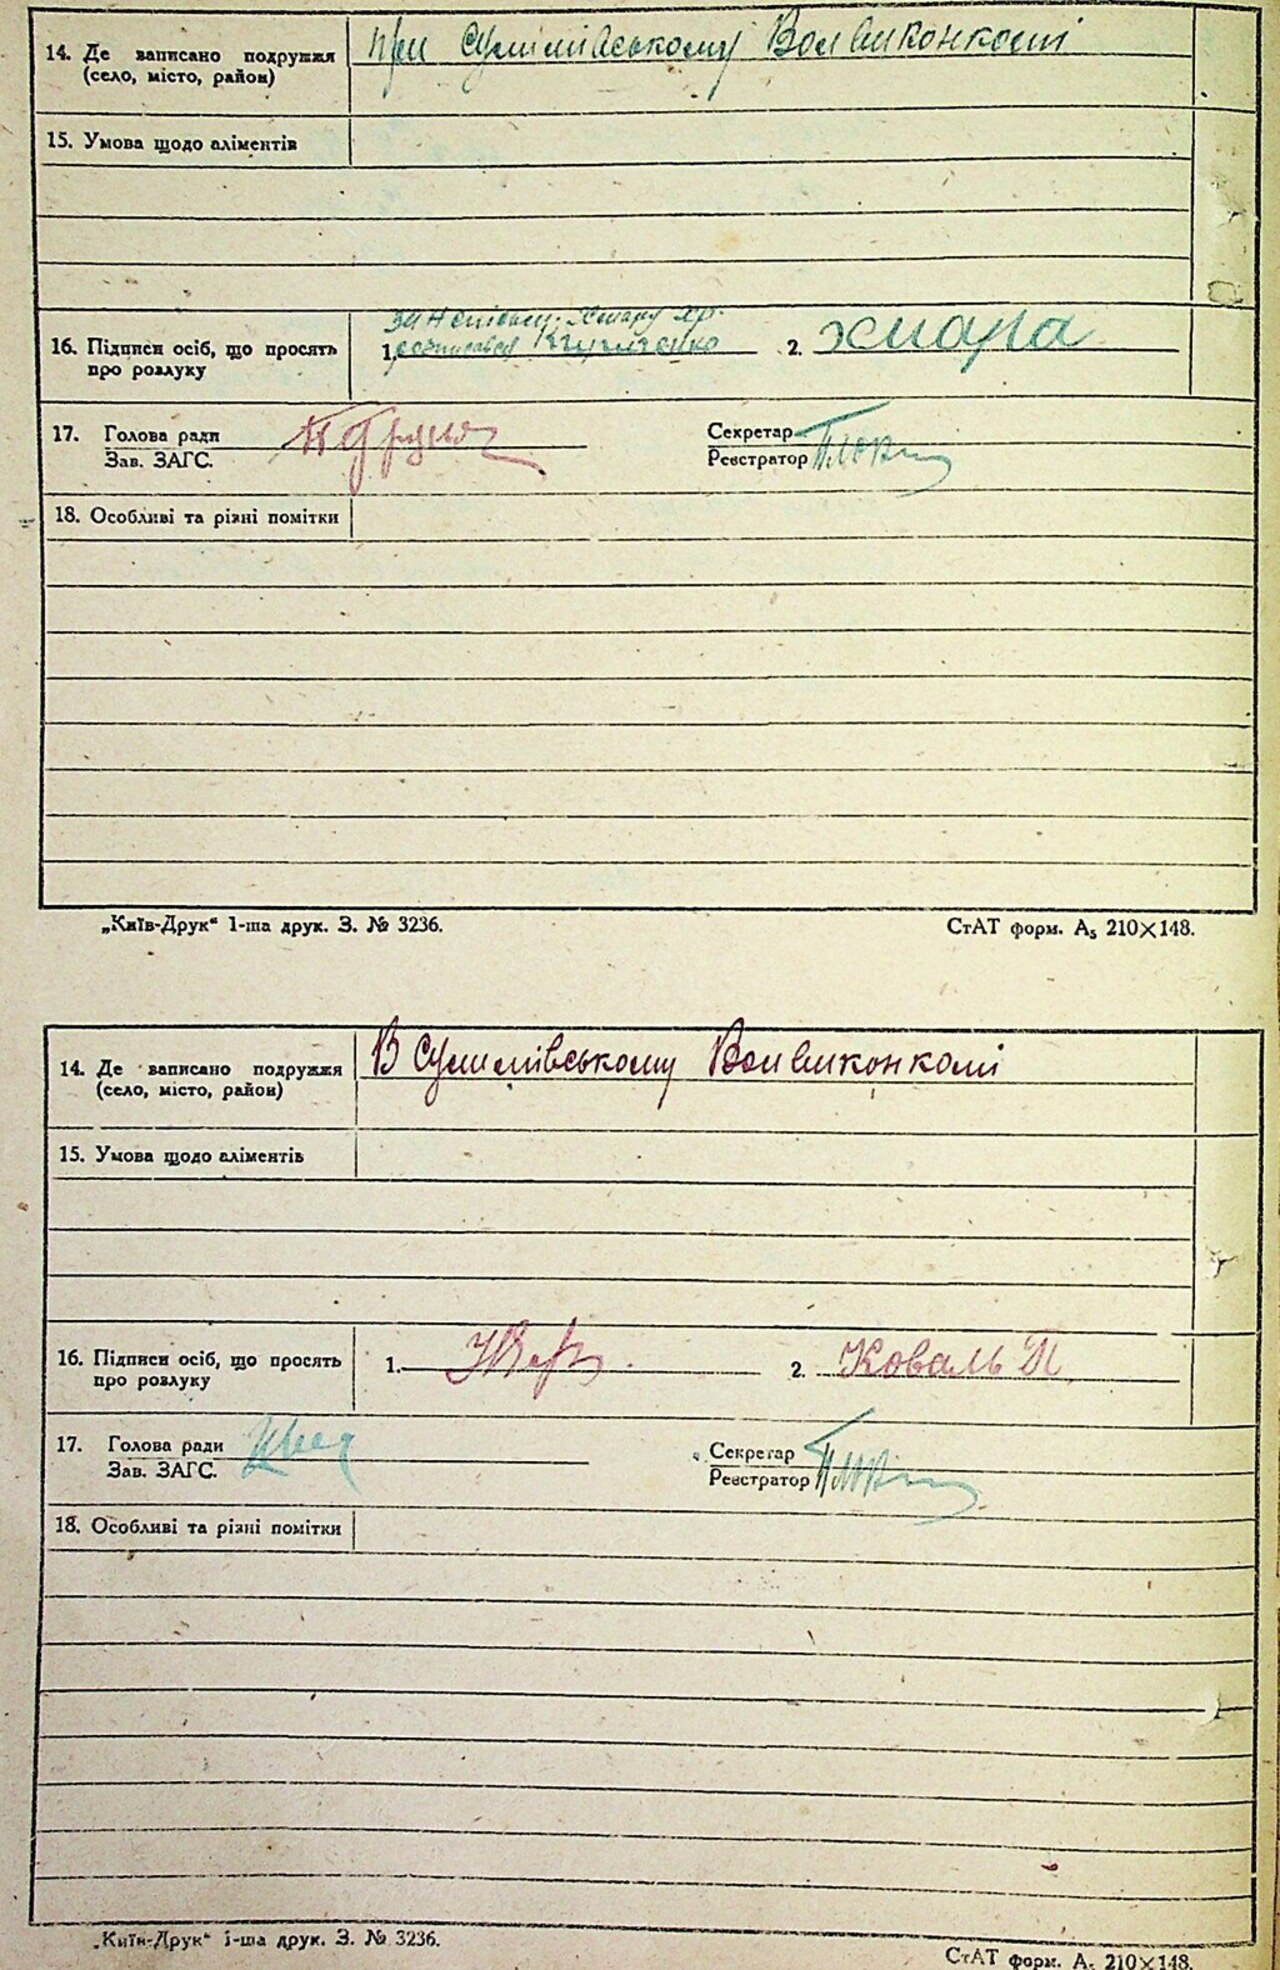 14. Де записано подружжя при Сулимівському Волвиконкомі
(село, місто, район)
15. Умова щодо аліментів
За неписьмен. Хмару Хр.
16. Підписи осіб, що просять 1. росписався 2. Хмара
про розлуку
17. Голова ради Секретар
Зав. ЗАГС. Реєстратор
18. Особливі та різні помітки
„Київ-Друк“ 1-ша друк. З. № 3236. СтАТ форм. А₅ 210×148.
14. Де записано подружжя В Сулимівському Волвиконкомі
(село, місто, район)
15. Умова щодо аліментів
16. Підписи осіб, що просять 1. 2. Коваль П
про розлуку
17. Голова ради Секретар
Зав. ЗАГС. Реєстратор
18. Особливі та різні помітки
„Київ-Друк“ 1-ша друк. З. № 3236.
СтАТ форм. А₅ 210×148.